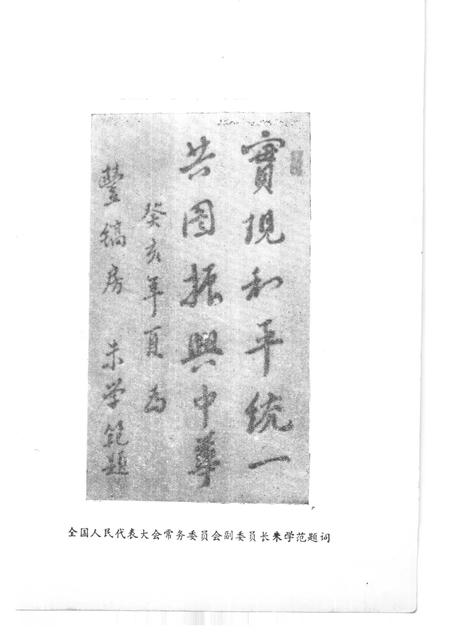 實現和平統一
共图振興中華
癸亥年夏为
豐镐房 朱学範題
全国人民代表大会常务委员会副委员长朱学范题词